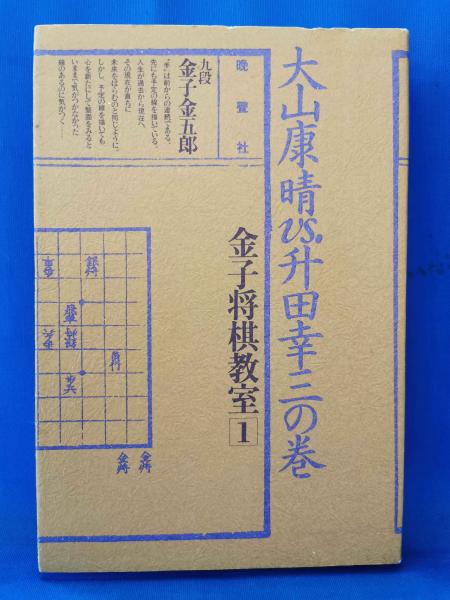 大山康晴vs.升田幸三の巻
金子将棋教室1
晩聲社
九段
金子金五郎
“手”は前からの連続である。
先にも予定の線を描いている。
人生が過去から現在へ、
その現在が直ちに
未来をはらむのと同じように。
しかし、予定の線を描いても
心を新たにして盤面をみると
いままで気がつかなかった
線のあるのに気がつく…
銀将
角行
銀将
金将
金将